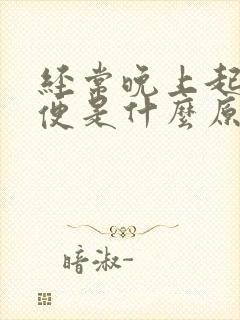 經常晚上起
便是什麼原
暗淑-